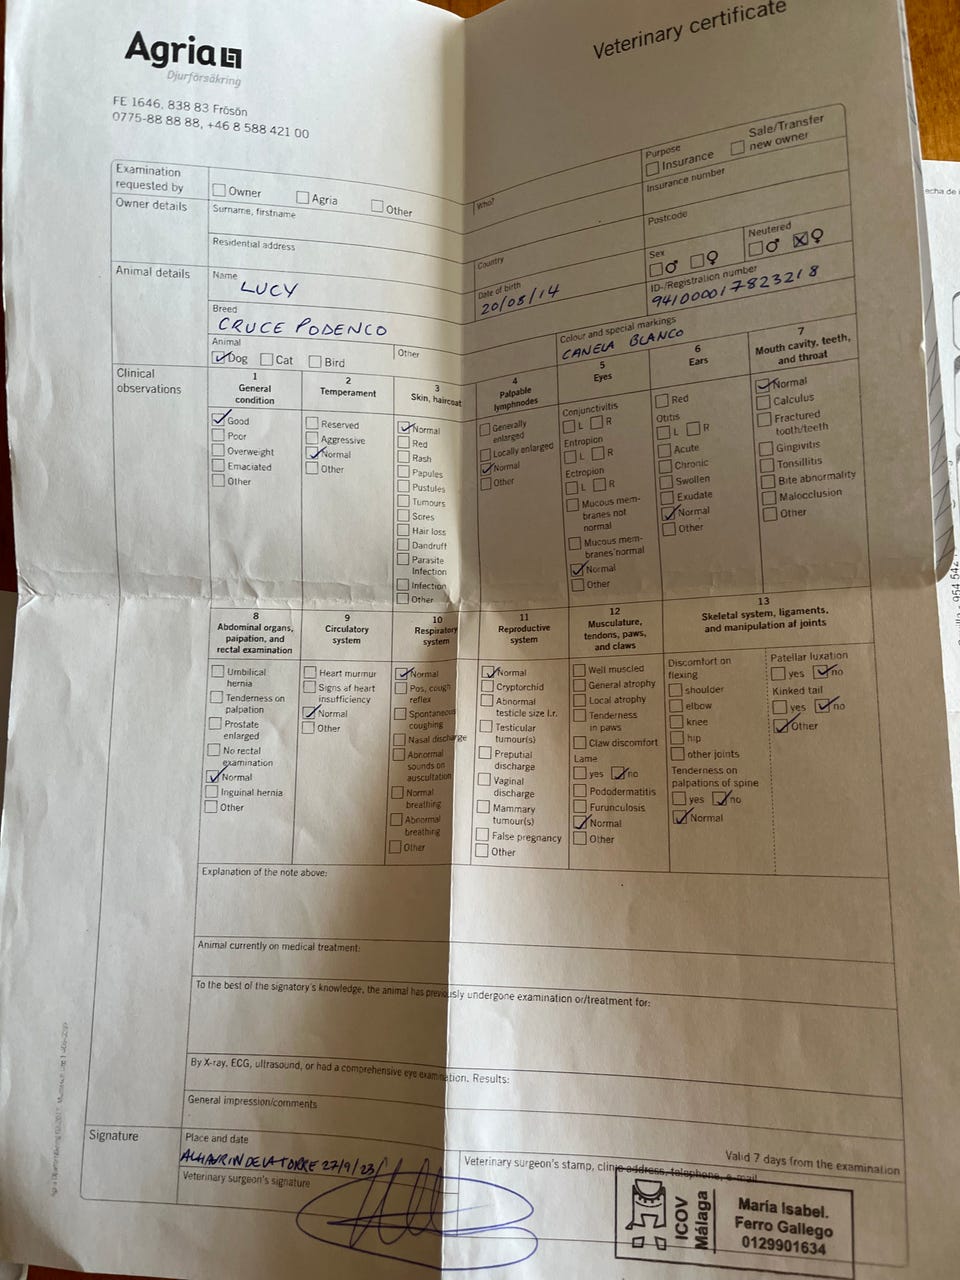 Agria
Djurförsäkring
Veterinary certificate
FE 1646, 838 83 Frösön
0775-88 88 88, +46 8 588 421 00
Examination requested by
Owner
Agria
Other
Who?
Purpose
Insurance
Sale/Transfer new owner
Insurance number
Owner details
Surname, firstname
Postcode
Residential address
Country
Sex
♂ ♀
Neutered
♂ ♀
Animal details
Name
LUCY
Date of birth
20/08/14
ID-/Registration number
941000017823218
Breed
CRUCE PODENCO
Colour and special markings
CANELA BLANCO
Animal
Dog
Cat
Bird
Other
Clinical observations
1
General condition
Good
Poor
Overweight
Emaciated
Other
2
Temperament
Reserved
Aggressive
Normal
Other
3
Skin, haircoat
Normal
Red
Rash
Papules
Pustules
Tumours
Sores
Hair loss
Dandruff
Parasite Infection
Infection
Other
4
Palpable lymphnodes
Generally enlarged
Locally enlarged
Normal
Other
5
Eyes
Conjunctivitis
L R
Entropion
L R
Ectropion
L R
Mucous mem-
branes not
normal
Mucous mem-
branes normal
Normal
Other
6
Ears
Red
Otitis
L R
Acute
Chronic
Swollen
Exudate
Normal
Other
7
Mouth cavity, teeth, and throat
Normal
Calculus
Fractured tooth/teeth
Gingivitis
Tonsillitis
Bite abnormality
Malocclusion
Other
8
Abdominal organs, palpation, and rectal examination
Umbilical hernia
Tenderness on palpation
Prostate enlarged
No rectal examination
Normal
Inguinal hernia
Other
9
Circulatory system
Heart murmur
Signs of heart insufficiency
Normal
Other
10
Respiratory system
Normal
Pos. cough reflex
Spontaneous coughing
Nasal discharge
Abnormal sounds on auscultation
Normal breathing
Abnormal breathing
Other
11
Reproductive system
Normal
Cryptorchid
Abnormal testicle size l.r.
Testicular tumour(s)
Preputial discharge
Vaginal discharge
Mammary tumour(s)
False pregnancy
Other
12
Musculature, tendons, paws, and claws
Well muscled
General atrophy
Local atrophy
Tenderness in paws
Claw discomfort
Lame
yes no
Pododermatitis
Furunculosis
Normal
Other
13
Skeletal system, ligaments, and manipulation af joints
Discomfort on flexing
shoulder
elbow
knee
hip
other joints
Tenderness on palpations of spine
yes no
Normal
Patellar luxation
yes no
Kinked tail
yes no
Other
Explanation of the note above:
Animal currently on medical treatment:
To the best of the signatory's knowledge, the animal has previously undergone examination or/treatment for:
By X-ray, ECG, ultrasound, or had a comprehensive eye examination. Results:
General impression/comments
Signature
Place and date
ALHAURIN DE LA TORRE 27/9/23
Valid 7 days from the examination
Veterinary surgeon's signature
Veterinary surgeon's stamp, clinic address, telephone, e-mail
ICOV
Málaga
María Isabel.
Ferro Gallego
0129901634